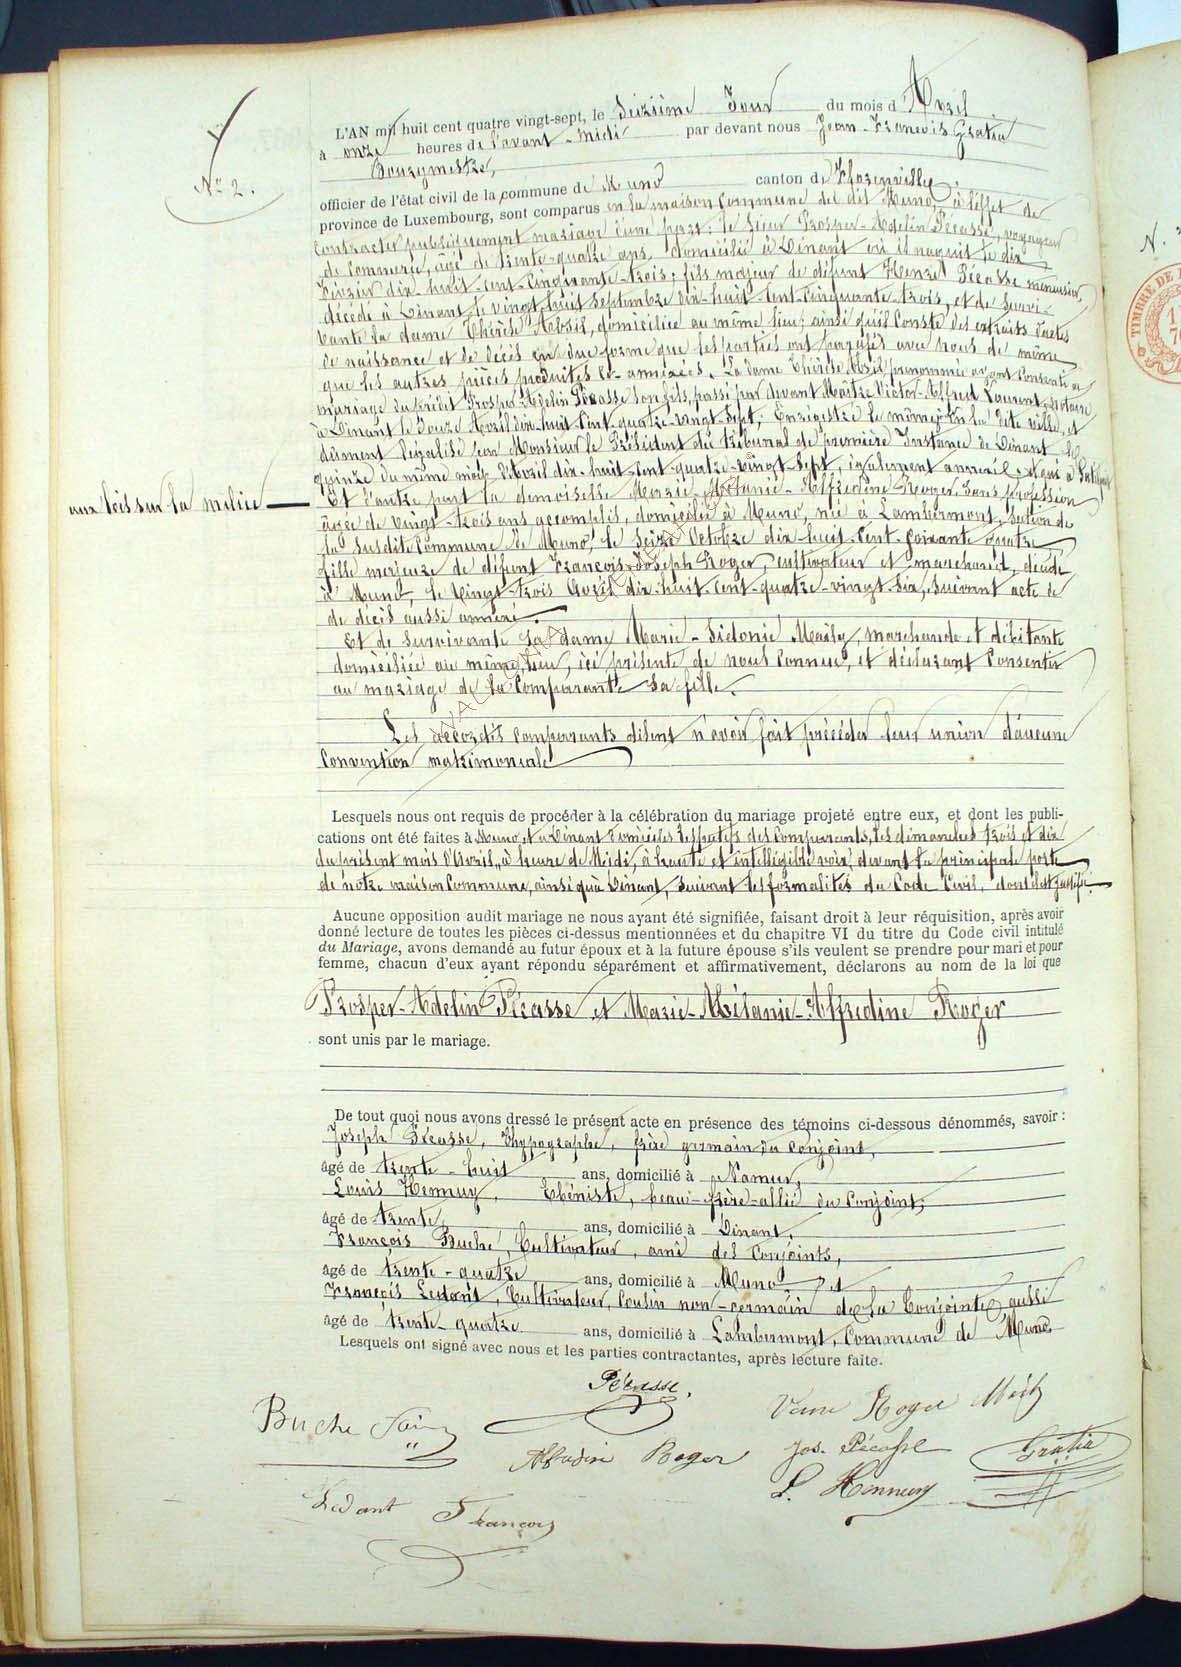 L'AN mil huit cent quatre vingt-sept, le Seizième Jour du mois d'Avril
à onze heures de l'avant-midi par devant nous Jean-François Gratia
Bourgmestre,
N° 2.
officier de l'état civil de la commune de Muno canton de Florenville,
province de Luxembourg, sont comparus en la maison commune del dit Muno, à l'effet de
contracter publiquement mariage d'une part: le Sieur Prosper-Adelin Pécasse, voyageur
de commerce, âgé de trente-quatre ans, domicilié à Dinant où il naquit le dix
Février dix-huit-cent-cinquante-trois; fils majeur de défunt Henri Pécasse menuisier,
décédé à Dinant, le vingt-huit Septembre dix-huit-cent-cinquante-trois, et de survi-
vante la dame Thérèse Absil, domiciliée au même lieu; ainsi qu'il conste des extraits d'actes
de naissance et de décès en due forme que les parties ont paraphés avec nous de même
que les autres pièces produites ci-annexées. La dame Thérèse Absil prénommée ayant consenti au
mariage du prédit Prosper-Adelin Pécasse son fils, passé par devant Maître Victor-Alfred Laurent, notaire
à Dinant le Douze Avril dix-huit-cent-quatre-vingt-sept; Enrégistré le même en la dite ville, et
dûment légalisé par Monsieur le Président du tribunal de première Instance de Dinant le
quinze du même mois d'Avril dix-huit-cent-quatre-vingt-sept, également annexé, et qui a satisfait
aux lois sur la milice
Et d'autre part la demoiselle Marie-Mélanie-Alfredine Roger, sans profession
âgée de vingt-trois ans accomplis, domiciliée à Muno, née à Lambermont, section de
la susdite commune de Muno, le seize Octobre dix-huit-cent-soixante-quatre
fille majeure de défunt François-Joseph Roger, cultivateur et marchand, décédé
à Muno, le Vingt-trois Avril dix-huit-cent-quatre-vingt-six, suivant acte de
de décès aussi annexé.
Et de survivante la dame Marie-Sidonie Mailz, marchande et débitante
domiciliée au même lieu, ici présente, de nous connue, et déclarant consentir
au mariage de la comparante sa fille.
Les accordés comparants disent n'avoir fait précéder leur union d'aucune
convention matrimoniale
Lesquels nous ont requis de procéder à la célébration du mariage projeté entre eux, et dont les publi-
cations ont été faites à Muno et à Dinant domiciles respectifs des comparants, les dimanches trois et dix
du présent mois d'Avril, à heure de Midi, à haute et intelligible voix, devant la principale porte
de notre maison commune, ainsi qu'à Dinant, suivant les formalités du Code Civil, dont il est justifié.
Aucune opposition audit mariage ne nous ayant été signifiée, faisant droit à leur réquisition, après avoir
donné lecture de toutes les pièces ci-dessus mentionnées et du chapitre VI du titre du Code civil intitulé
du Mariage, avons demandé au futur époux et à la future épouse s'ils veulent se prendre pour mari et pour
femme, chacun d'eux ayant répondu séparément et affirmativement, déclarons au nom de la loi que
Prosper-Adelin Pécasse et Marie-Mélanie-Alfredine Roger
sont unis par le mariage.
De tout quoi nous avons dressé le présent acte en présence des témoins ci-dessous dénommés, savoir :
Joseph Pécasse, Thypographe, frère germain du conjoint,
âgé de trente-huit ans, domicilié à Namur,
Louis Hennuy, Ebéniste, beau-frère-allié du conjoint,
âgé de trente ans, domicilié à Dinant,
François Buché, Cultivateur, ami des conjoints,
âgé de trente-quatre ans, domicilié à Muno, et
François Ledant, Cultivateur, cousin non-germain de la conjointe, aussi
âgé de trente-quatre ans, domicilié à Lambermont, commune de Muno
Lesquels ont signé avec nous et les parties contractantes, après lecture faite.
Pécasse. Roger Mailz
Buche
Alfredine Roger Jos. Pécasse Gratia
L. Hennuy
Ledant François